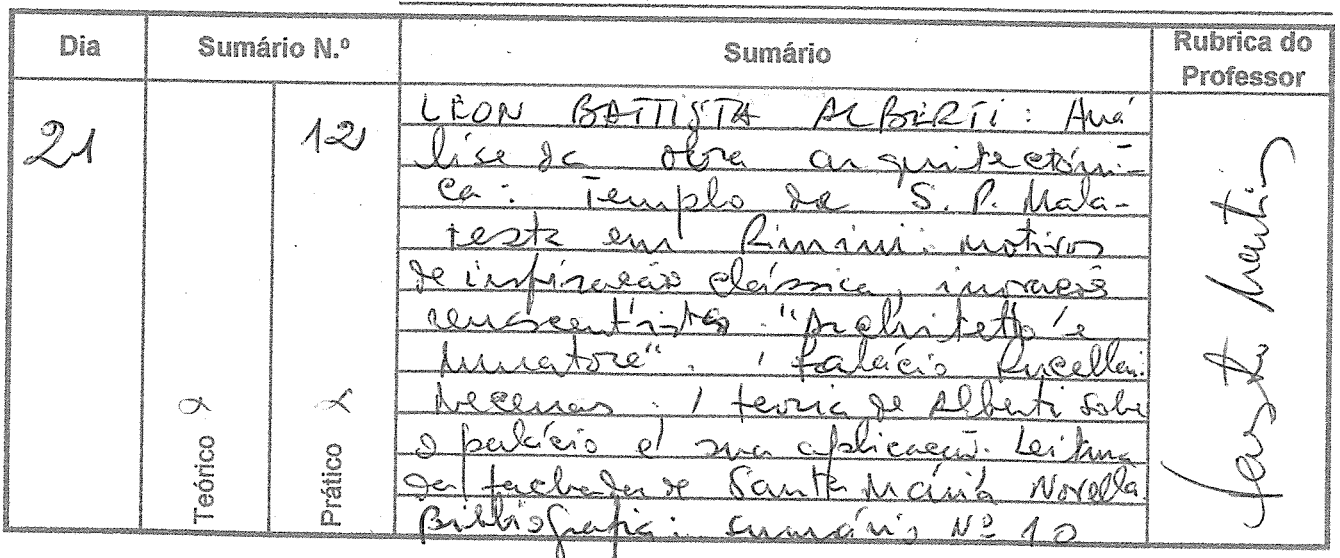 Dia Sumário N.º Sumário Rubrica do Professor
21 12
LEON BATTISTA ALBERTI: Aná
lise da obra arquitectóni-
ca: Templo de S. P. Mala-
testa em Rimini: motivos
de inspiração clássica, inovações
renascentistas. "Architetto e
muratore". Palácio Rucellai:
Mecenas. teoria de Alberti sobre
o palácio e sua aplicação. Leitura
da fachada de Santa Maria Novella
Bibliografia: sumário Nº 10
Teórico
Prático